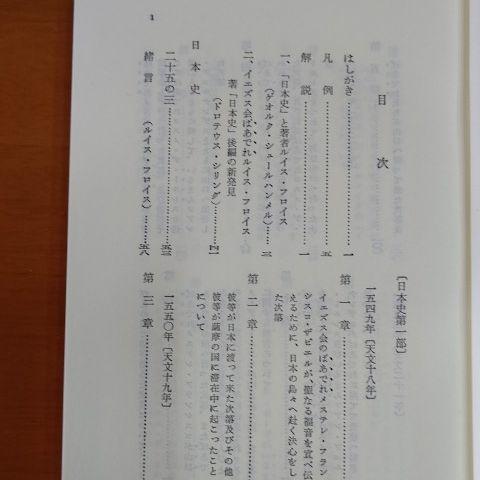 目次
はしがき…………一
凡例…………五
解説…………一
一、「日本史」と著者ルイス・フロイス
(ゲオルク・シュールハンメル)…………三
二、イエズス会ぱあでれルイス・フロイス
著「日本史」後編の新発見
(ドロテウス・シリング)…………[21]
日本史
二十五の三…………五三
緒言(ルイス・フロイス)…………五八
1
〔日本史第一部〕
一五四九年〔天文十八年〕
第一章
イエズス会のぱあでれメステレ・フラン
シスコ・ザビエルが、聖なる福音を宣べ伝
えるために、日本の島々へ赴く決心をし
た次第
第二章
彼等が日本に渡って来た次第及びその他
彼等が薩摩の国に滞在中に起こったこと
について
一五五〇年〔天文十九年〕
第三章